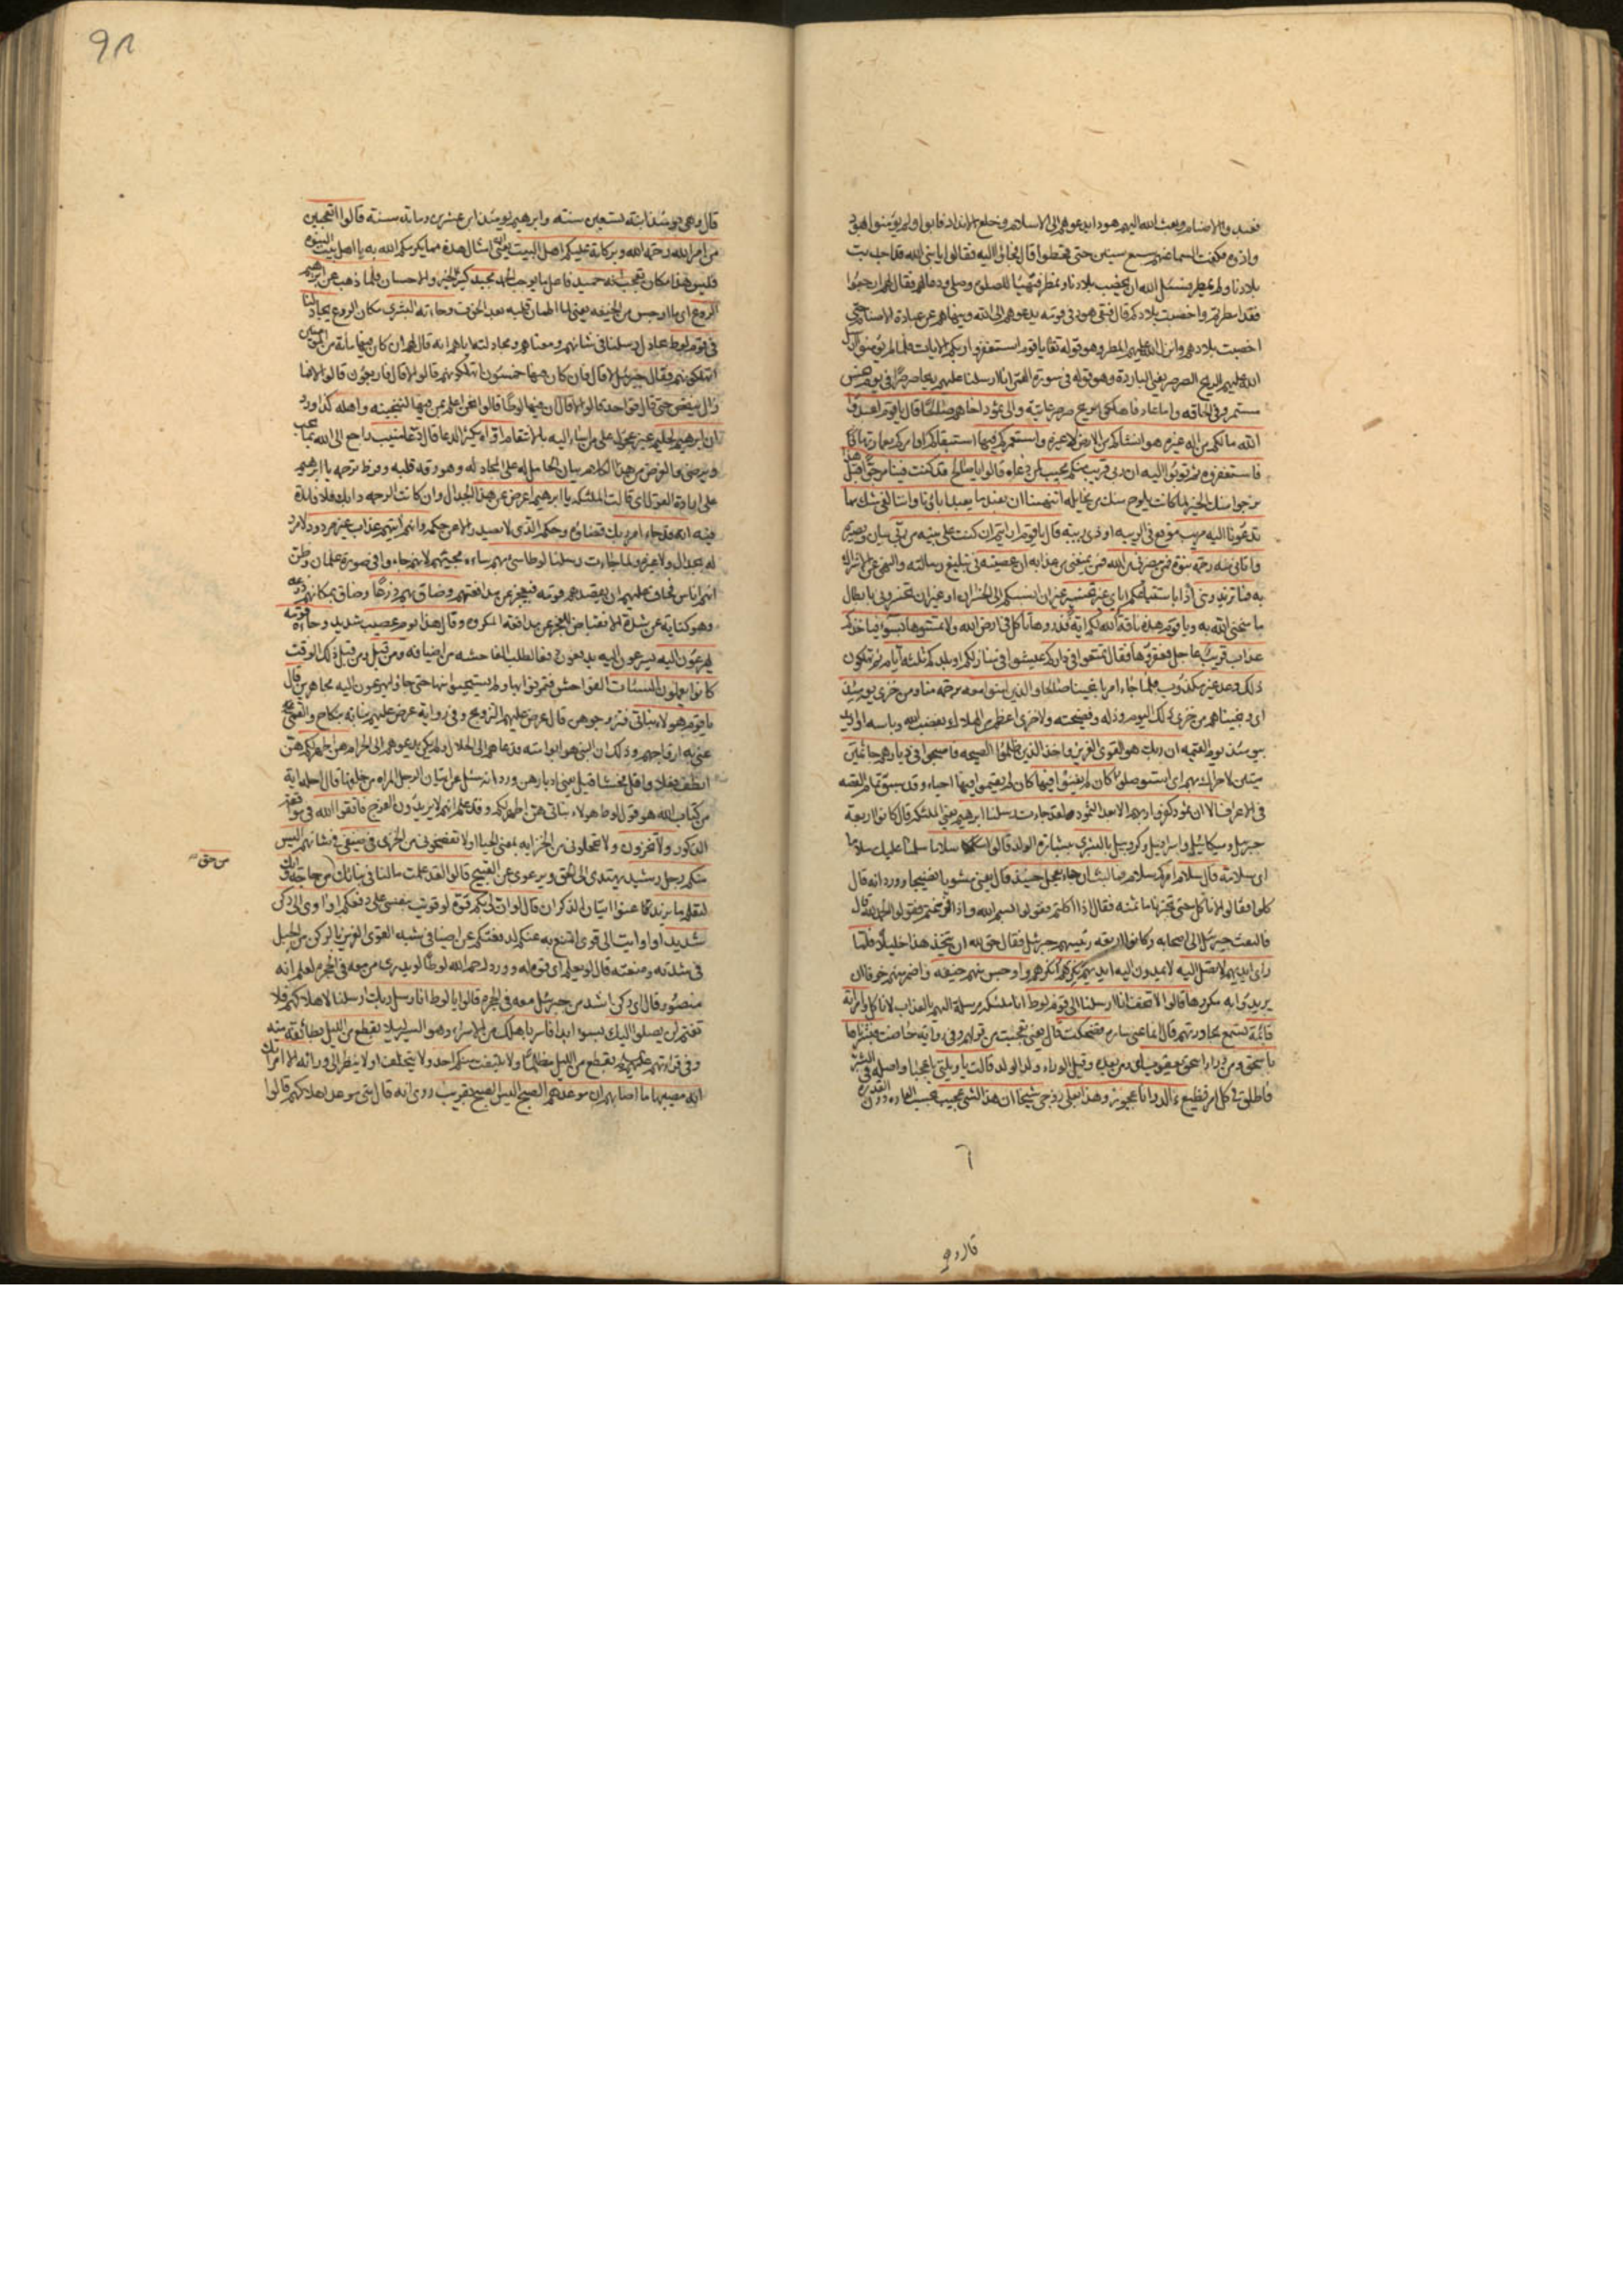 فعبدوا الاصنام وبعث الله اليهم هودا يدعوهم الى الاسلام وخلع الانداد فابوا ولم يؤمنوا بهود
واذوه فكفت السماء عنهم سبع سنين حتى قحطوا قال فجاؤا اليه فقالوا يا نبى الله قد اجدبت
بلادنا ولم تمطر فسئل الله ان يخصب بلادنا وتمطر فتهيأ للصلوة وصلى ودعا لهم فقال لهم ارجعوا
فقد امطرتم واخصبت بلادكم قال فبقى هود فى قومه يدعوهم الى الله وينهاهم عن عبادة الاصنام حتى
اخصبت بلادهم وانزل الله عليهم المطر وهو قوله تعا يا قوم استغفروا ربكم الايات فلما لم يؤمنوا ارسل
الله عليهم الريح الصرصر يعنى الباردة وهو قوله فى سورة القمر انا ارسلنا عليهم ريحا صرصرا فى يوم نحس
مستمر وفى الحاقه واما عاد فاهلكوا بريح صرصر عاتية والى ثمود اخاهم صلحا قال يا قوم اعبدوا
الله ما لكم من اله غيره هو انشأكم من الارض لا غيره واستعمركم فيها استبقاكم او امركم بعمارتها
فاستغفروه ثم توبوا اليه ان ربى قريب منكم مجيب لمن دعاه قالوا يا صالح قد كنت فينا مرجوا قبل هذا
نرجوا منك الخير لما كانت يلوح منك من مخايله اتنهينا ان نعبد ما يعبد اباؤنا واننا لفى شك مما
تدعونا اليه مريب موقع فى الريبه او ذى ريبة قال يا قوم ارايتم ان كنت على بينه من ربى بيان وبصيرة
واتانى منه رحمة نبوة فمن ينصرنى من الله فمن يمنعنى من عذابه ان عصيته فى تبليغ رسالته والنهى عن الاشراك
به فما تزيدوننى اذا باستتباعكم اياى غير تخسير غير ان انسبكم الى الخسران او غير ان تخسرونى بابطال
ما منحنى الله به ويا قوم هذه ناقة الله لكم اية فذروها تاكل فى ارض الله ولا تمسوها بسوء فياخذكم
عذاب قريب عاجل فعقروها فقال تمتعوا فى داركم عيشوا فى منازلكم او بلدكم ثلثة ايام ثم تهلكون
ذلك وعد غير مكذوب فلما جاء امرنا نجينا صالحا والذين امنوا معه برحمة منا ومن خزى يومئذ
اى ونجيناهم من خزى ذلك اليوم وذله وفضيحته ولا خزى اعظم من الهلاك بغضب الله وباسه او اريد
بيومئذ يوم القيمه ان ربك هو القوى العزيز واخذ الذين ظلموا الصيحه فاصبحوا فى ديارهم جاثمين
ميتين لا حراك بهم اى استوصلوا كان لم يغنوا فيها كان لم يقيموا فيها احياء وقد سبق تمام القصه
فى الاعراف الا ان ثمود كفروا ربهم الا بعدا لثمود ولقد جاءت رسلنا ابرهيم يعنى الملئكه قال كانوا اربعة
جبرئل وميكائيل واسرافيل وكروبيل بالبشرى ببشارة الولد قالوا سلاما سلمنا عليك سلاما
اى سلامة قال سلام امركم سلام فما لبث ان جاء بعجل حنيذ قال يعنى مشويا نضيجا وورد انه قال
كلوا فقالوا لا ناكل حتى تخبرنا ما ثمنه فقال اذا اكلتم فقولوا بسم الله واذا فرغتم فقولوا الحمد لله قال
فالتفت جبرئل الى اصحابه وكانوا اربعه رئيسهم جبرئل فقال حق لله ان يتخذ هذا خليلا فلما
راى ايديهم لا تصل اليه لا يمدون اليه ايديهم نكرهم انكرهم واوجس منهم خيفه واضمر منهم خوفا ان
يريدوا به مكروها قالوا لا تخف انا ارسلنا الى قوم لوط انا ملئكه مرسلة اليهم بالعذاب لا ناكل وامراته
قائمة تسمع محاورتهم قال انما عنى سارة فضحكت قال يعنى تعجبت من قولهم وفى رواية حاضت فبشرناها
باسحق ومن وراء اسحق يعقوب اى من بعده وقيل الوراء ولد الولد قالت يا ويلتى يا عجبا واصله فى الشر
فاطلق فى كل امر فظيع ءالد وانا عجوز وهذا بعلى زوجى شيخا ان هذا لشئ عجيب بحسب العادة دون القدرة
قال وهى
قال وهى يومئذ ابنة تسعين سنة وابرهيم يومئذ ابن عشرين ومائة سنة قالوا اتعجبين
من امر الله رحمة الله وبركاته عليكم اهل البيت يعنى ان امثال هذه مما يكرمكم الله به يا اهل بيت النبوة
فليس هذا مكان تعجب انه حميد فاعل ما يوجب الحمد مجيد كثير الخير والاحسان فلما ذهب عن ابرهيم
الروع اى ما اوجس من الخيفه يعنى لما اطمان قلبه بعد الخوف وجاءته البشرى مكان الروع يجادلنا
فى قوم لوط يجادل رسلنا فى شانهم ومعناهم ومجادلته اياهم انه قال لهم ان كان فيها مائة من المؤمنين
اتهلكونهم فقال جبرئل لا قال فان كان فيها خمسون اتهلكونهم قالوا لا قال فاربعون قالوا لا فما
زال ينقص حتى قال فواحد قالوا لا قال ان فيها لوطا قالوا نحن اعلم بمن فيها لننجينه واهله كذا ورد
ان ابرهيم لحليم غير عجول على من اساء اليه بالانتقام اواه كثير الدعا قال دعاء منيب راجع الى الله بما يحب
ويرضى والغرض من هذا الكلام بيان الحامل له على المجادله وهو رقة قلبه وفرط ترحمه يا ابرهيم
على ارادة القول اى قالت الملئكه يا ابرهيم اعرض عن هذا الجدال وان كانت الرحمه دابك فلا فائدة
فيه انه قد جاء امر ربك قضاؤه وحكمه الذى لا يصدر الا عن حكمه وانهم اتيهم عذاب غير مردود لا مرد
له بجدال ولا غيره ولما جاءت رسلنا لوطا سئ بهم ساءه مجيئهم لانهم جاءوا فى صورة غلمان وظن
انهم اناس فخاف عليهم ان يقصدهم قومه فيعجز عن مدافعتهم وضاق بهم ذرعا وضاق بمكانهم ذرعه
وهو كناية عن شدة الانقباض للعجز عن مدافعة المكروه وقال هذا يوم عصيب شديد وجاءه قومه
يهرعون اليه يسرعون اليه يدفعون دفعا لطلب الفاحشه من اضيافه ومن قبل ومن قبل ذلك الوقت
كانوا يعملون السيئات الفواحش فتمرنوا بها ولم يستحيوا منها حتى جاؤا يهرعون اليه مجاهرين قال
يا قوم هولاء بناتى فتزوجوهن قال عرض عليهم التزويج وفى رواية عرض عليهم بناته بنكاح والقمى
عنى به ازواجهم وذلك ان النبى هو ابو امته فدعاهم الى الحلال ولم يكن يدعوهم الى الحرام هن اطهر لكم هن
انظف فعلا واقل فحشا قيل يعنى ادبارهن وورد انه سئل عن اتيان الرجل المراه من خلفها قال احلها اية
من كتاب الله هو قول لوط هولاء بناتى هن اطهر لكم وقد علم انهم لا يريدون الفرج فاتقوا الله فى مواقعة
الذكور ولا تخزون ولا تخجلونى من الخزاية بمعنى الحيا او لا تفضحونى من الخزى فى ضيفى فى شانهم اليس
منكم رجل رشيد يهتدى الى الحق ويرعوى عن القبيح قالوا لقد علمت ما لنا فى بناتك من حاجة وانك
من حق
لتعلم ما نريد كما عنوا اتيان الذكران قال لو ان لى بكم قوة لو قويت بنفسى على دفعكم او اوى الى ركن
شديد او اويت الى قوى اتمنع به عنكم لدفعتكم عن اضيافى شبه القوى العزيز بالركن من الجبل
فى شدته ومنعته قال لو يعلم اى قوة له وورد رحم الله لوطا لو يدرى من معه فى الحجرة لعلم انه
منصور وقال اى ركن اشد من جبرئل معه فى الحجرة قالوا يا لوط انا رسل ربك ارسلنا لاهلاكهم فلا
تغتم لن يصلوا اليك بسوء ابدا فاسر باهلك من الاسراء وهو السير ليلا بقطع من الليل بطائفة منه
وفى قراءتهم عليهم السلام بقطع من الليل مظلما ولا يلتفت منكم احد ولا يتخلف او لا ينظر الى ورائه الا امراتك
انه مصيبها ما اصابهم ان موعدهم الصبح اليس الصبح بقريب روى انه قال متى موعد اهلاكهم قالوا